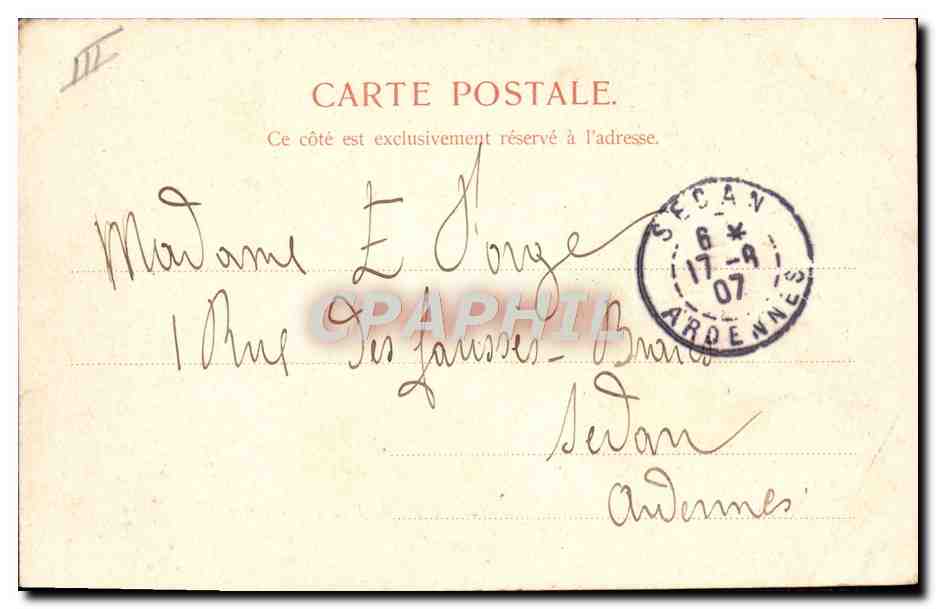 III
CARTE POSTALE.
Ce côté est exclusivement réservé à l'adresse.
Madame E
SEDAN
6 *
17 -8
07
ARDENNES
CPAPHIL
1 Rue des fausses-Braies
Sedan
Ardennes